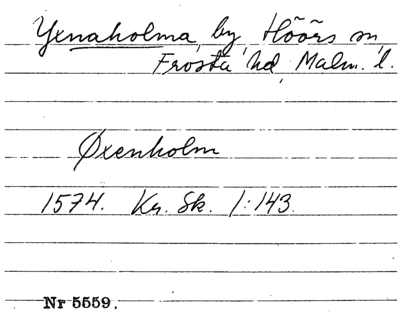 Yxnaholma, by, Höörs sn,
Frosta hd, Malm. l.
Øxenholm
1574. Kr. Sk. 1:143.
Nr 5559.